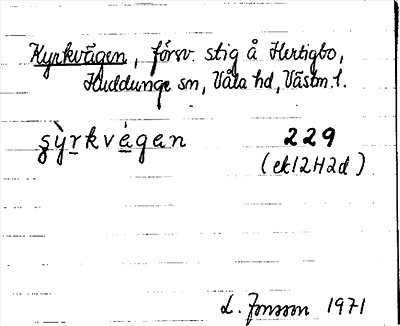 Kyrkvägen, försv. stig å Hertigbo,
Huddunge sn, Våla hd, Västm. l.
şỳrkvágen 229
(ek12H2d)
L. Jonsson 1971